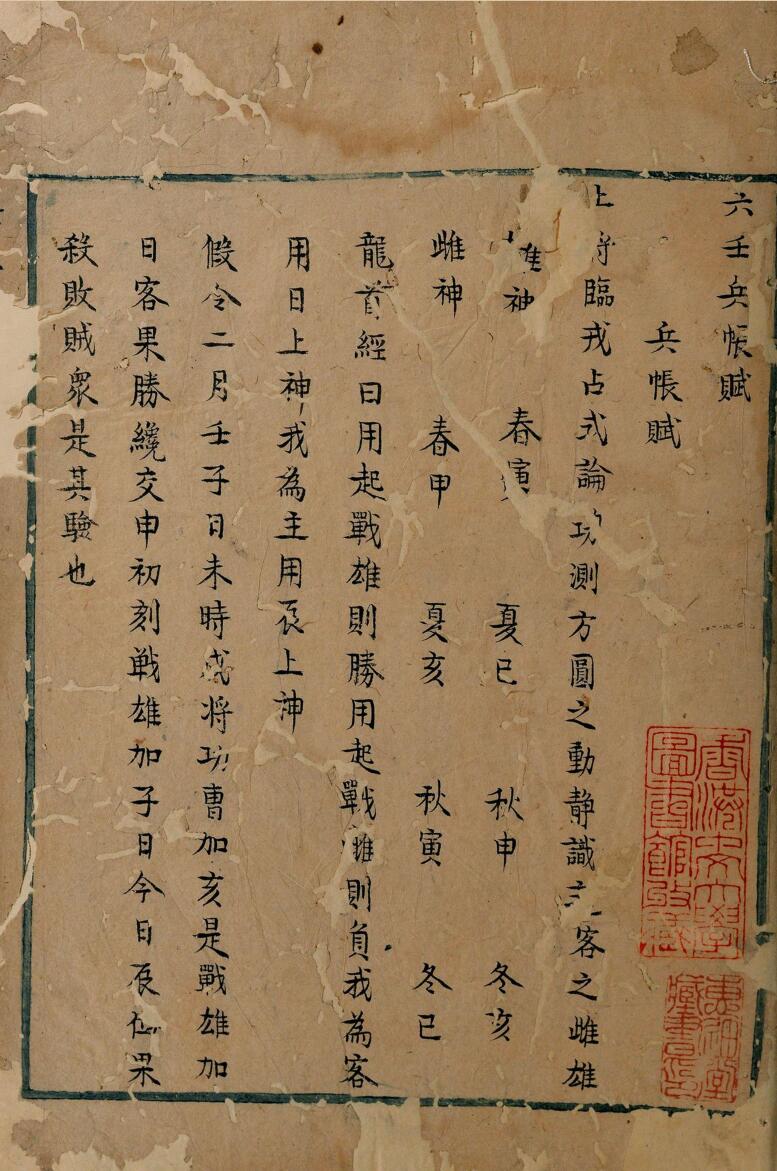 六壬兵帳賦
兵帳賦
上將臨戎占式論功測方圓之動静識主客之雌雄
雄神 春寅 夏巳 秋申 冬亥
雌神 春甲 夏亥 秋寅 冬巳
龍首經曰用起戰雄則勝用起戰雌則負我為客
用日上神我為主用辰上神
假令二月壬子日未時 将功曹加亥是戰雄加
日客果勝纔交申初刻戰雄加子日今日辰 果
殺敗賊衆是其驗也
香港中文大學
圖書館
藏書